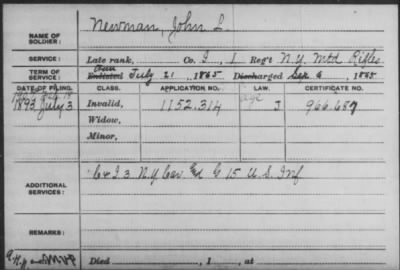 NAME OF SOLDIER: Newman, John L.
SERVICE: Late rank, Co. I, 1 Reg't N.Y. Mtd Rifles
TERM OF SERVICE: Enlisted July 21, 1865 Discharged Sep 6, 1865
DATE OF FILING. CLASS. APPLICATION NO. LAW. CERTIFICATE NO.
1893 July 3 Invalid, 1152.314 J 966.687
Age
Widow,
Minor,
ADDITIONAL SERVICES: C & I 3 N.Y Cav. Ed G 15 U.S. Inf
REMARKS:
Died, 1, at